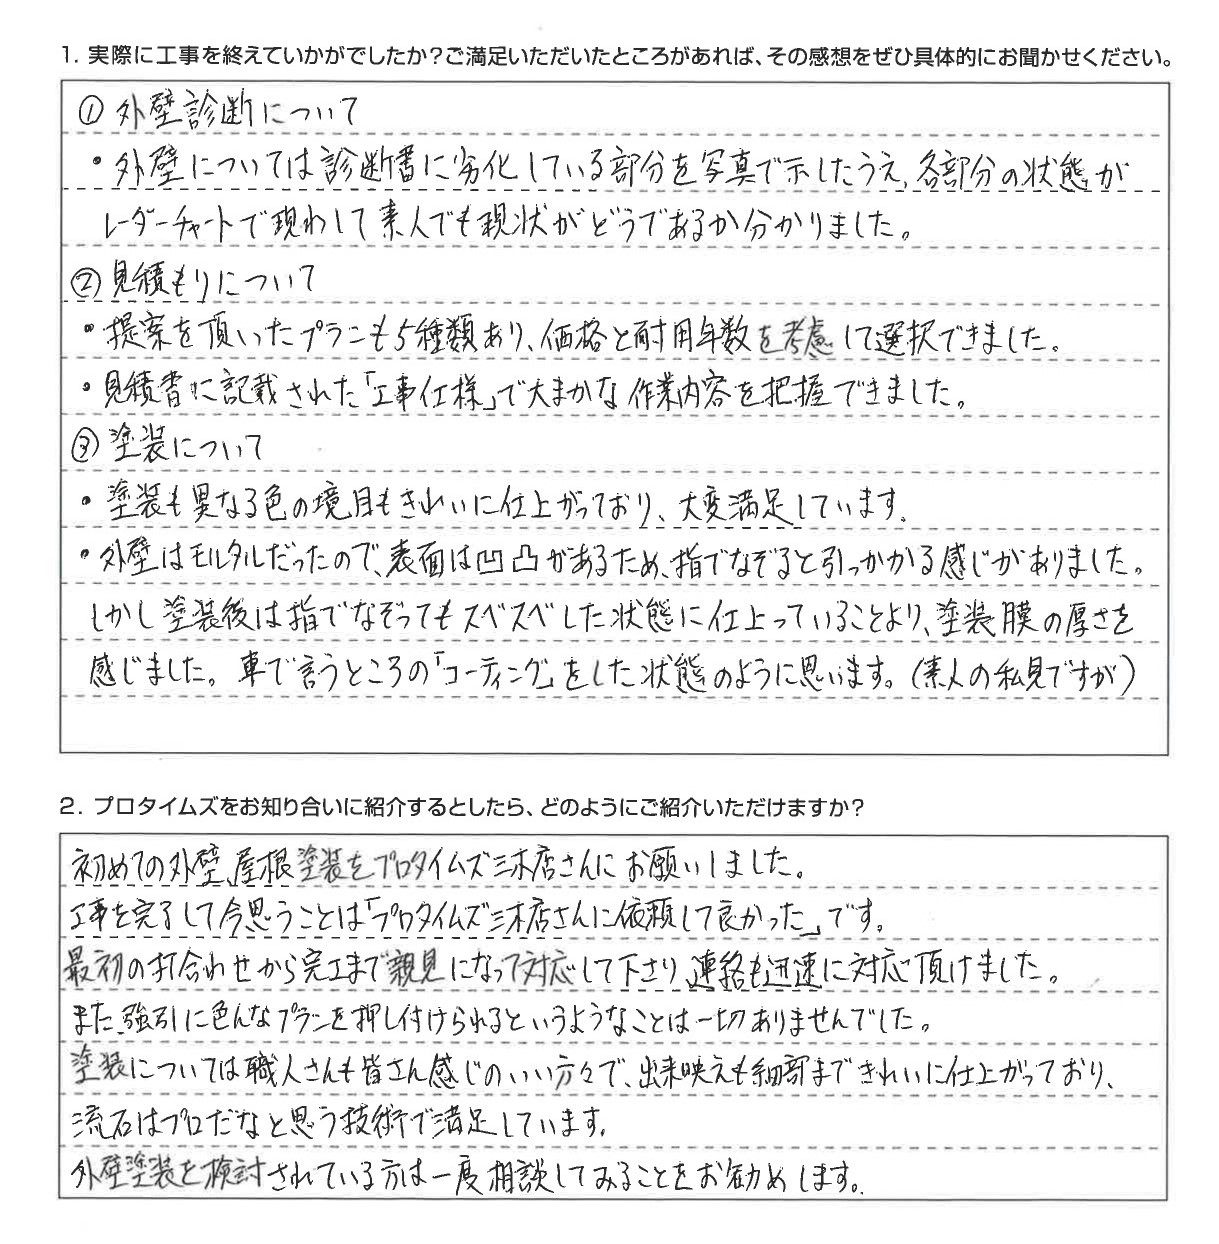 1. 実際に工事を終えていかがでしたか?ご満足いただいたところがあれば、その感想をぜひ具体的にお聞かせください。
① 外壁診断について
・外壁については診断書に劣化している部分を写真で示したうえ、各部分の状態が
レーダーチャートで現わして素人でも現状がどうであるか分かりました。
② 見積もりについて
・提案を頂いたプランも5種類あり、価格と耐用年数を考慮して選択できました。
・見積書に記載された「工事仕様」で大まかな作業内容を把握できました。
③ 塗装について
・塗装も異なる色の境目もきれいに仕上がっており、大変満足しています。
・外壁はモルタルだったので、表面は凹凸があるため、指でなぞると引っかかる感じがありました。
しかし塗装後は指でなぞってもスベスベした状態に仕上っていることより、塗装膜の厚さを
感じました。車で言うところの「コーティング」をした状態のように思います。(素人の私見ですが)
2. プロタイムズをお知り合いに紹介するとしたら、どのようにご紹介いただけますか?
初めての外壁、屋根塗装をプロタイムズ三木店さんにお願いしました。
工事を完了して今思うことは「プロタイムズ三木店さんに依頼して良かった」です。
最初の打合わせから完工まで親見になって対応して下さり、連絡も迅速に対応頂けました。
また、強引に色んなプランを押し付けられるというようなことは一切ありませんでした。
塗装については職人さんも皆さん感じのいい方々で、出来映えも細部まできれいに仕上がっており、
流石はプロだなと思う技術で満足しています。
外壁塗装を検討されている方は一度相談してみることをお勧めします。